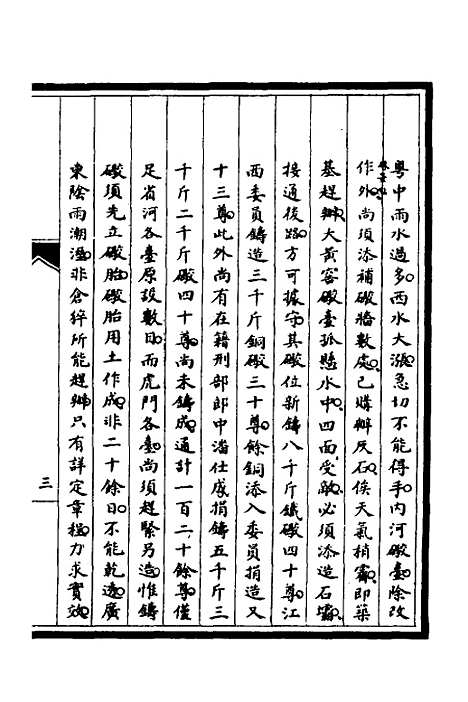 粵中雨水過多西水大漲急切不能得手內河礮臺除改
作外尚須添補礮牆數處已購辦灰石俟天氣稍霽即築
基趕辦大黃窖礮臺孤懸水中四面受敵必須添造石壩
接通後路方可據守其礮位新鑄八千斤鐵礮四十尊江
西委員鑄造三千斤銅礮三十尊餘銅添入委員捐造又
十三尊此外尚有在籍刑部郎中潘仕成捐鑄五千斤三
千斤二千斤礮四十尊尚未鑄成通計一百二十餘尊僅
足省河各臺原設數目而虎門各臺尚須趕緊另造惟鑄
礮須先立礮胎礮胎用土作成非二十餘日不能乾透廣
東陰雨潮溼非倉猝所能趕辦只有詳定章程力求實效
三